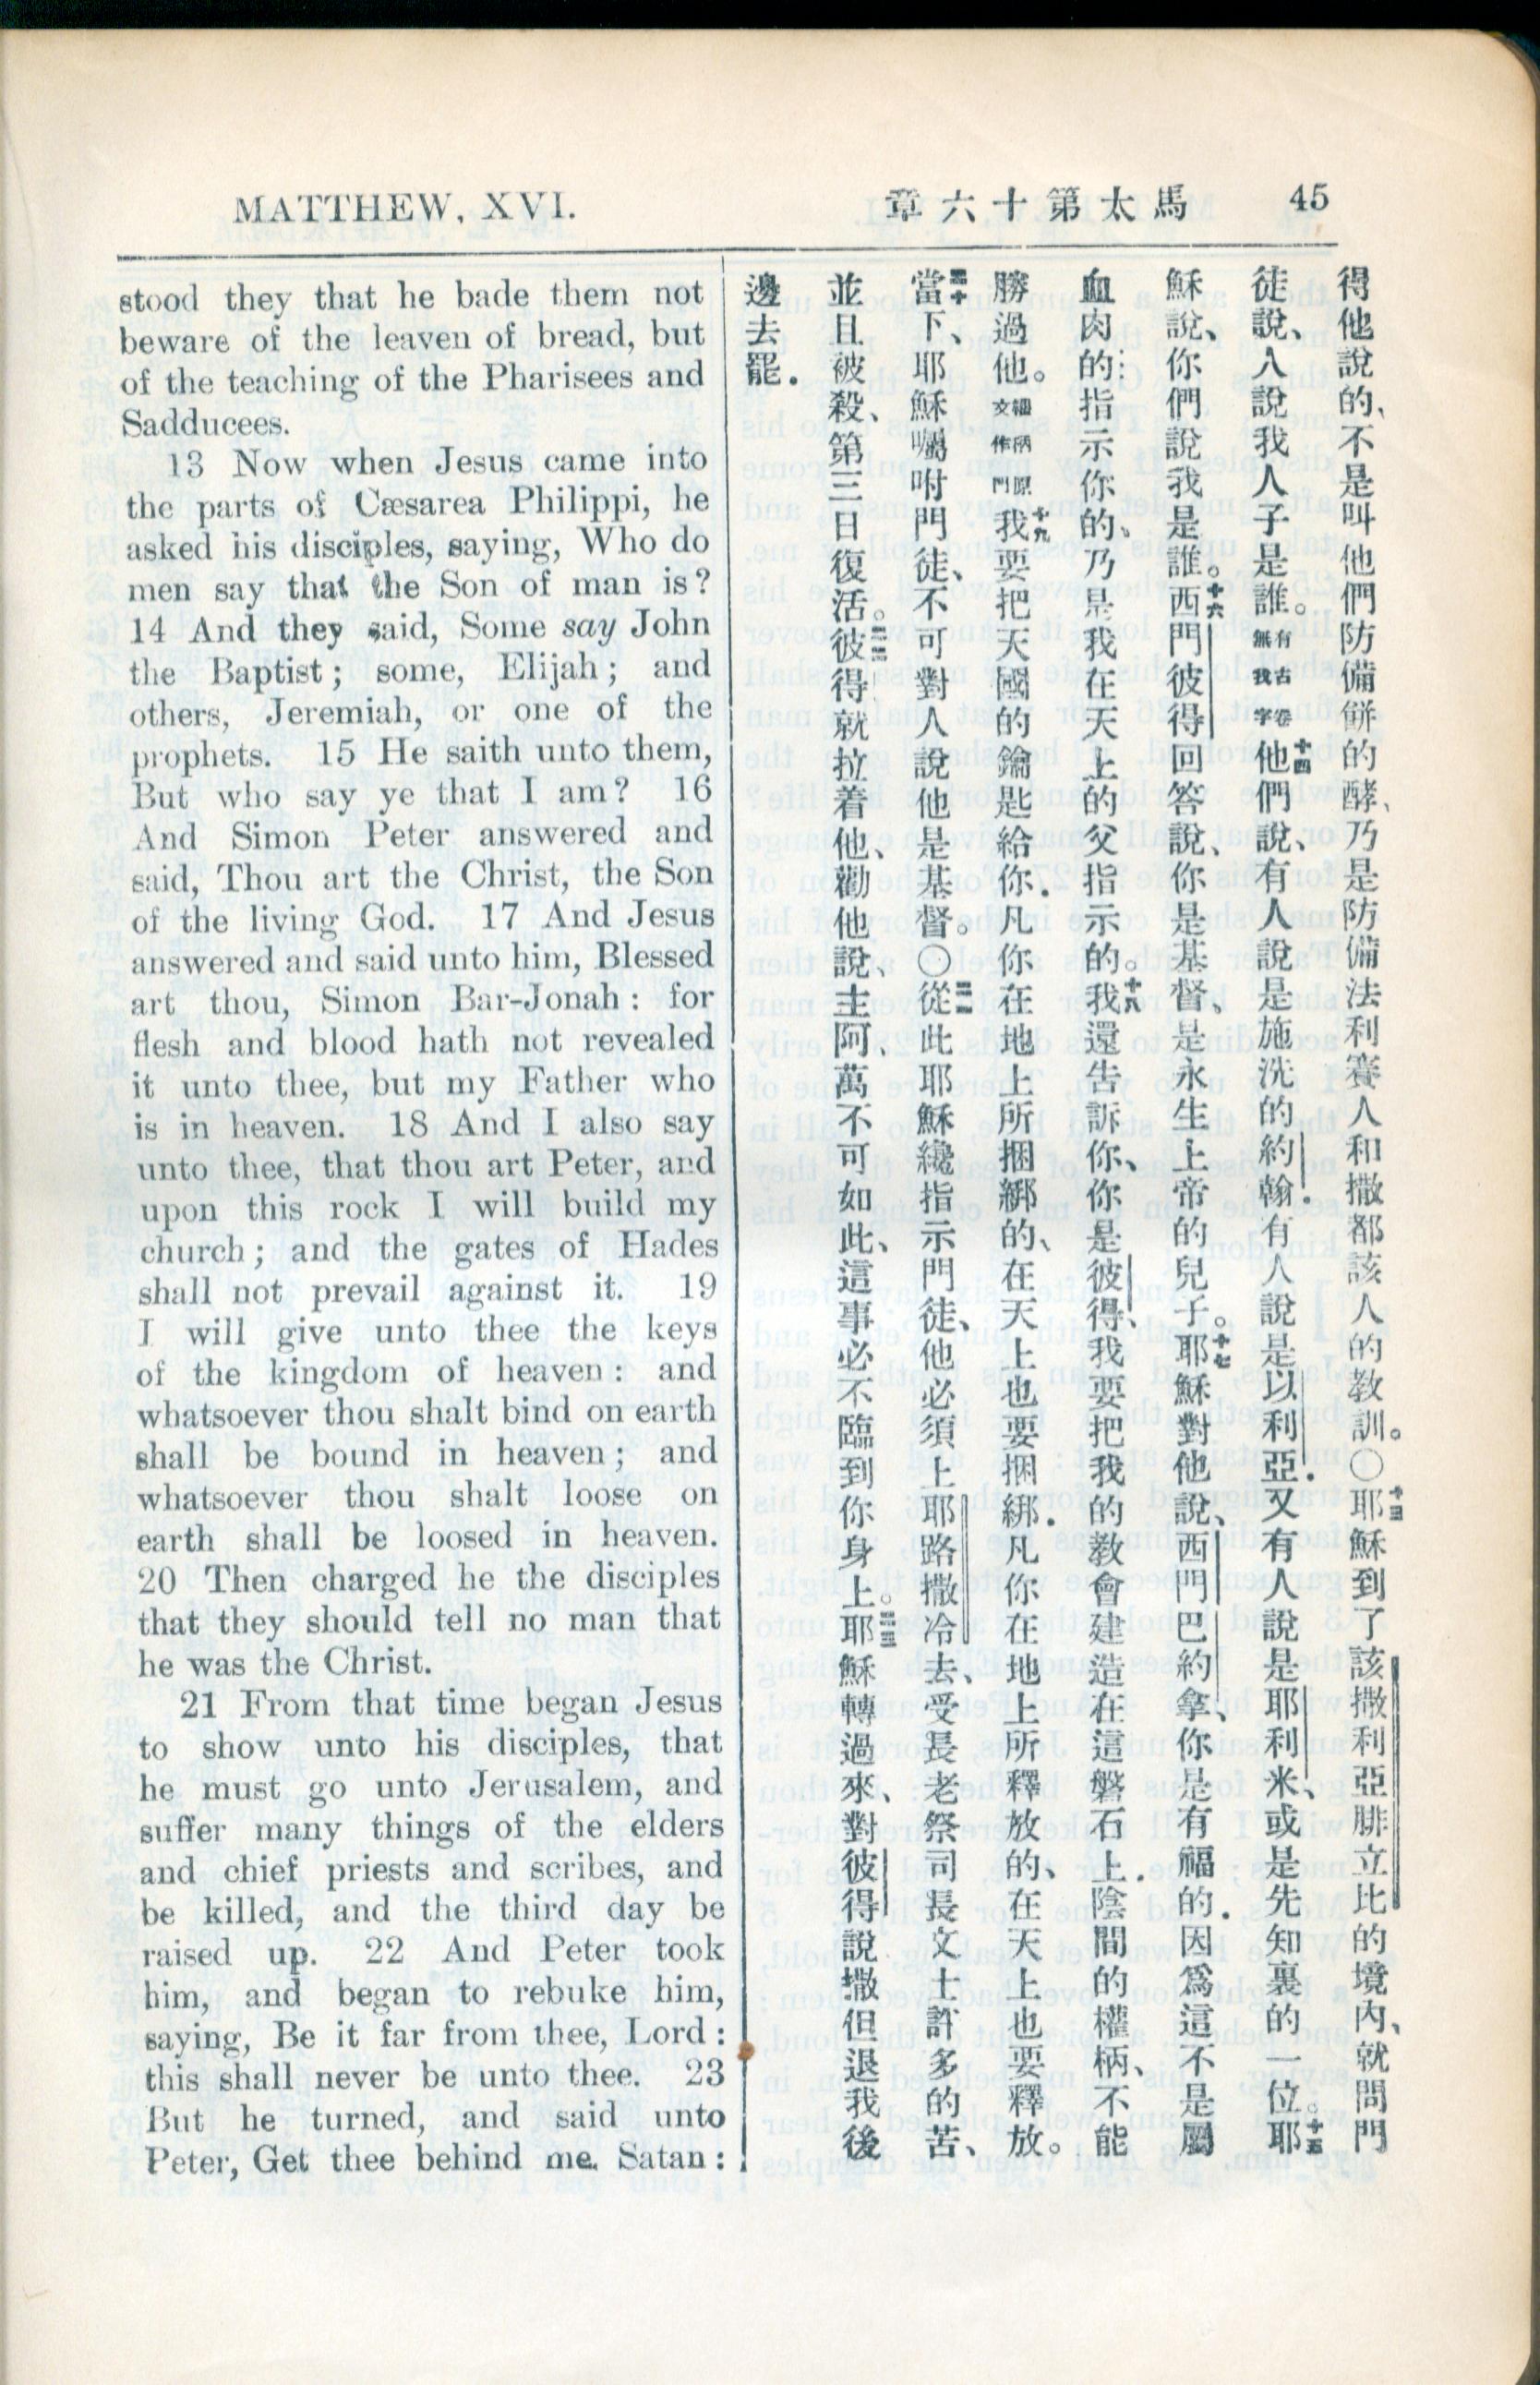 MATTHEW, XVI.
章六十第太馬
45
stood they that he bade them not
beware of the leaven of bread, but
of the teaching of the Pharisees and
Sadducees.
13 Now when Jesus came into
the parts of Cæsarea Philippi, he
asked his disciples, saying, Who do
men say that the Son of man is?
14 And they said, Some say John
the Baptist; some, Elijah; and
others, Jeremiah, or one of the
prophets. 15 He saith unto them,
But who say ye that I am? 16
And Simon Peter answered and
said, Thou art the Christ, the Son
of the living God. 17 And Jesus
answered and said unto him, Blessed
art thou, Simon Bar-Jonah: for
flesh and blood hath not revealed
it unto thee, but my Father who
is in heaven. 18 And I also say
unto thee, that thou art Peter, and
upon this rock I will build my
church; and the gates of Hades
shall not prevail against it. 19
I will give unto thee the keys
of the kingdom of heaven: and
whatsoever thou shalt bind on earth
shall be bound in heaven; and
whatsoever thou shalt loose on
earth shall be loosed in heaven.
20 Then charged he the disciples
that they should tell no man that
he was the Christ.
21 From that time began Jesus
to show unto his disciples, that
he must go unto Jerusalem, and
suffer many things of the elders
and chief priests and scribes, and
be killed, and the third day be
raised up. 22 And Peter took
him, and began to rebuke him,
saying, Be it far from thee, Lord:
this shall never be unto thee. 23
But he turned, and said unto
Peter, Get thee behind me. Satan:
得他說的、不是叫他們防備餅的酵、乃是防備法利賽人和撒都該人的教訓。〇十三耶穌到了該撒利亞腓立比的境內、就問門
徒說、人說我人子是誰。有古卷無我字十四他們說、有人說是施洗的約翰．有人說是以利亞．又有人說是耶利米、或是先知裏的一位。十五耶
穌說、你們說我是誰。十六西門彼得回答說、你是基督、是永生上帝的兒子。十七耶穌對他說、西門巴約拿、你是有福的．因爲這不是屬
血肉的指示你的、乃是我在天上的父指示的。十八我還告訴你、你是彼得、我要把我的教會建造在這磐石上．陰間的權柄、不能
勝過他。權柄原文作門十九我要把天國的鑰匙給你．凡你在地上所捆綁的、在天上也要捆綁．凡你在地上所釋放的、在天上也要釋放。
二十當下、耶穌囑咐門徒、不可對人說他是基督。〇二一從此耶穌纔指示門徒、他必須上耶路撒冷去、受長老祭司長文士許多的苦、
並且被殺、第三日復活。二二彼得就拉着他、勸他說、主阿、萬不可如此、這事必不臨到你身上。二三耶穌轉過來、對彼得說撒但退我後
邊去罷．